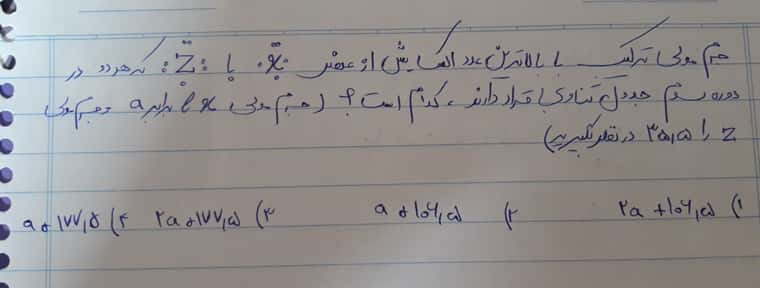 جرم مولی ترکیب با بالاترین عدد اکسایش از عنصر X با Z: که هر دو در
دوره سوم جدول تناوبی قرار دارند، کدام است؟ (جرم مولی X برابر a و جرم مولی
Z را ۳۵,۵ در نظر بگیرید)
۱) 2a + ۱۰۶,۵ ۲) a + ۱۰۶,۵ ۳) 2a + ۱۷۷,۵ ۴) a + ۱۷۷,۵